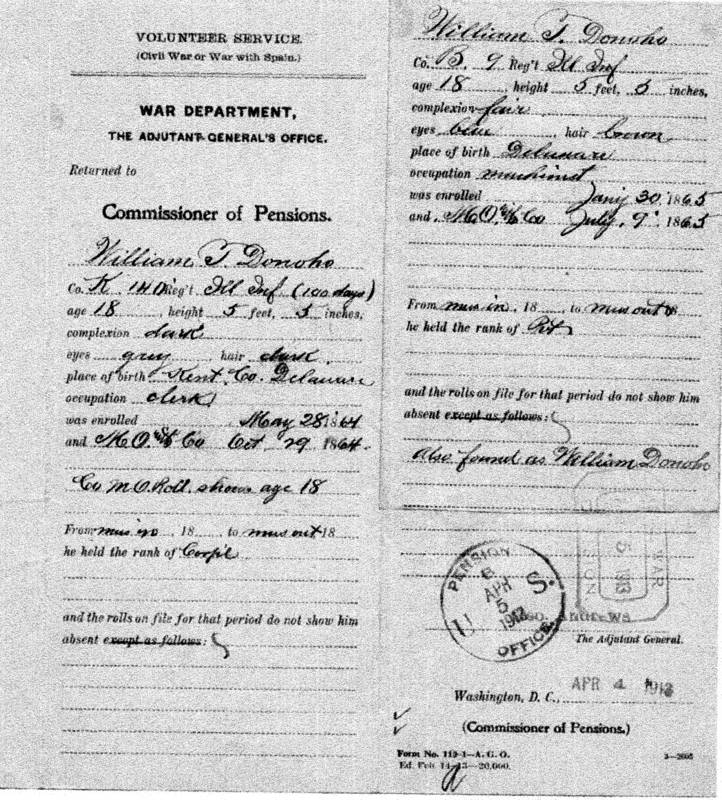 VOLUNTEER SERVICE.
(Civil War or War with Spain.)
WAR DEPARTMENT,
THE ADJUTANT-GENERAL'S OFFICE.
Returned to
Commissioner of Pensions.
William T. Donoho
Co. K 140 Reg't Ill Inf (100 days)
age 18, height 5 feet, 5 inches,
complexion dark
eyes grey hair dark
place of birth Kent Co. Delaware
occupation clerk
was enrolled May 28 1864
and M.O. w Co Oct 29 1864.
Co M.O. Roll shows age 18
From mus in, 18 , to mus out 18
he held the rank of Corp'l
and the rolls on file for that period do not show him
absent except as follows:
William T. Donoho
Co. B. 9 Reg't Ill Inf
age 18, height 5 feet, 5 inches,
complexion fair
eyes blue hair brown
place of birth Delaware
occupation machinist
was enrolled Jan'y 30, 1865
and M.O. w Co July 9 1865
From mus in, 18 , to mus out 18
he held the rank of Pvt
and the rolls on file for that period do not show him
absent except as follows:
Also found as William Donoho
PENSION
APR
5
U S.
OFFICE
WAR
5 1913
Geo. Andrews
The Adjutant General.
Washington, D. C., APR 4 1913
(Commissioner of Pensions.)
Form No. 119-1—A. G. O.
Ed. Feb 14-13—20,000.